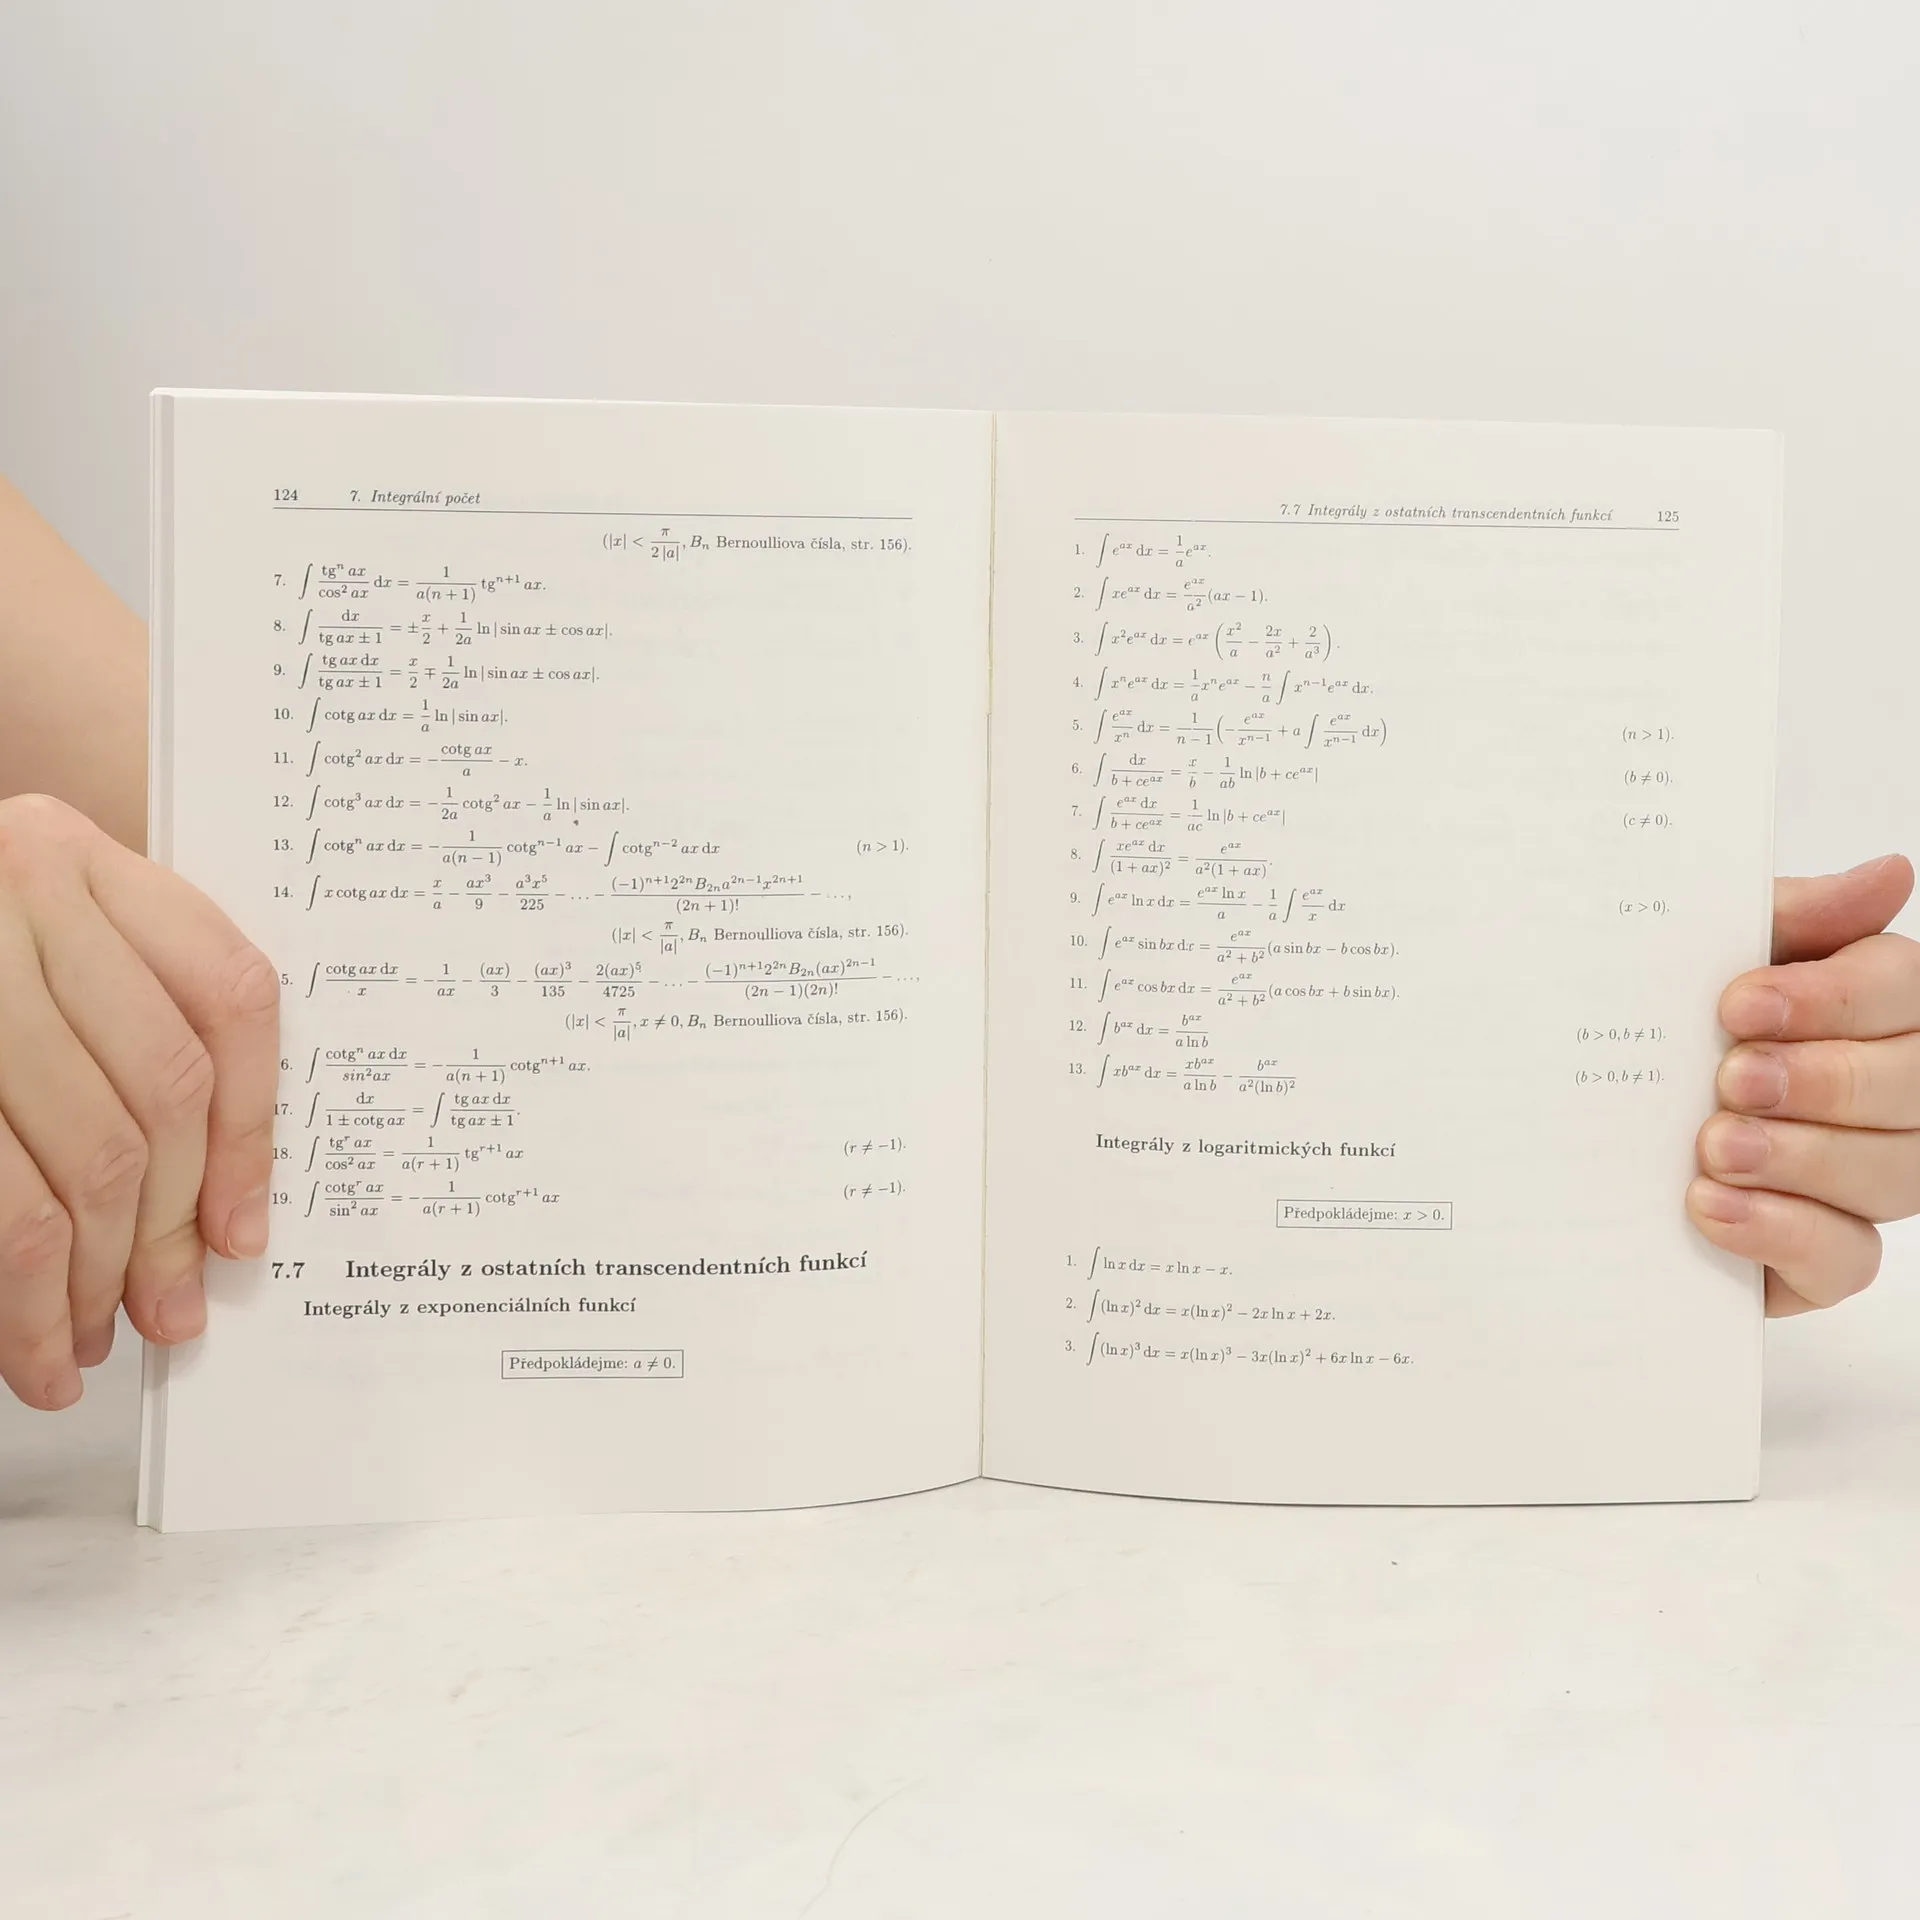 124 7. Integrální počet
(|x| < π/(2|a|), Bₙ Bernoulliova čísla, str. 156).
7. ∫ (tgⁿ ax)/(cos² ax) dx = 1/(a(n + 1)) tgⁿ⁺¹ ax.
8. ∫ dx/(tg ax ± 1) = ± x/2 + 1/(2a) ln | sin ax ± cos ax|.
9. ∫ (tg ax dx)/(tg ax ± 1) = x/2 ∓ 1/(2a) ln | sin ax ± cos ax|.
10. ∫ cotg ax dx = 1/a ln | sin ax|.
11. ∫ cotg² ax dx = − (cotg ax)/a − x.
12. ∫ cotg³ ax dx = − 1/(2a) cotg² ax − 1/a ln | sin ax|.
13. ∫ cotgⁿ ax dx = − 1/(a(n − 1)) cotgⁿ⁻¹ ax − ∫ cotgⁿ⁻² ax dx (n > 1).
14. ∫ x cotg ax dx = x/a − ax³/9 − a³x⁵/225 − … − ((−1)ⁿ⁺¹2²ⁿB₂ₙa²ⁿ⁻¹x²ⁿ⁺¹)/((2n + 1)!) − …,
(|x| < π/|a|, Bₙ Bernoulliova čísla, str. 156).
5. ∫ (cotg ax dx)/x = − 1/(ax) − (ax)/3 − (ax)³/135 − 2(ax)⁵/4725 − … − ((−1)ⁿ⁺¹2²ⁿB₂ₙ(ax)²ⁿ⁻¹)/((2n − 1)(2n)!) − …,
(|x| < π/|a|, x ≠ 0, Bₙ Bernoulliova čísla, str. 156).
6. ∫ (cotgⁿ ax dx)/(sin²ax) = − 1/(a(n + 1)) cotgⁿ⁺¹ ax.
17. ∫ dx/(1 ± cotg ax) = ∫ (tg ax dx)/(tg ax ± 1).
18. ∫ (tgʳ ax)/(cos² ax) = 1/(a(r + 1)) tgʳ⁺¹ ax (r ≠ −1).
19. ∫ (cotgʳ ax)/(sin² ax) = − 1/(a(r + 1)) cotgʳ⁺¹ ax (r ≠ −1).
7.7 Integrály z ostatních transcendentních funkcí
Integrály z exponenciálních funkcí
Předpokládejme: a ≠ 0.
7.7 Integrály z ostatních transcendentních funkcí 125
1. ∫ eᵃˣ dx = 1/a eᵃˣ.
2. ∫ xeᵃˣ dx = eᵃˣ/a² (ax − 1).
3. ∫ x²eᵃˣ dx = eᵃˣ (x²/a − 2x/a² + 2/a³).
4. ∫ xⁿeᵃˣ dx = 1/a xⁿeᵃˣ − n/a ∫ xⁿ⁻¹eᵃˣ dx.
5. ∫ eᵃˣ/xⁿ dx = 1/(n − 1) (− eᵃˣ/xⁿ⁻¹ + a ∫ eᵃˣ/xⁿ⁻¹ dx) (n > 1).
6. ∫ dx/(b + ceᵃˣ) = x/b − 1/(ab) ln |b + ceᵃˣ| (b ≠ 0).
7. ∫ (eᵃˣ dx)/(b + ceᵃˣ) = 1/(ac) ln |b + ceᵃˣ| (c ≠ 0).
8. ∫ (xeᵃˣ dx)/(1 + ax)² = eᵃˣ/(a²(1 + ax)).
9. ∫ eᵃˣ ln x dx = (eᵃˣ ln x)/a − 1/a ∫ eᵃˣ/x dx (x > 0).
10. ∫ eᵃˣ sin bx dx = eᵃˣ/(a² + b²) (a sin bx − b cos bx).
11. ∫ eᵃˣ cos bx dx = eᵃˣ/(a² + b²) (a cos bx + b sin bx).
12. ∫ bᵃˣ dx = bᵃˣ/(a ln b) (b > 0, b ≠ 1).
13. ∫ xbᵃˣ dx = xbᵃˣ/(a ln b) − bᵃˣ/(a²(ln b)²) (b > 0, b ≠ 1).
Integrály z logaritmických funkcí
Předpokládejme: x > 0.
1. ∫ ln x dx = x ln x − x.
2. ∫ (ln x)² dx = x(ln x)² − 2x ln x + 2x.
3. ∫ (ln x)³ dx = x(ln x)³ − 3x(ln x)² + 6x ln x − 6x.